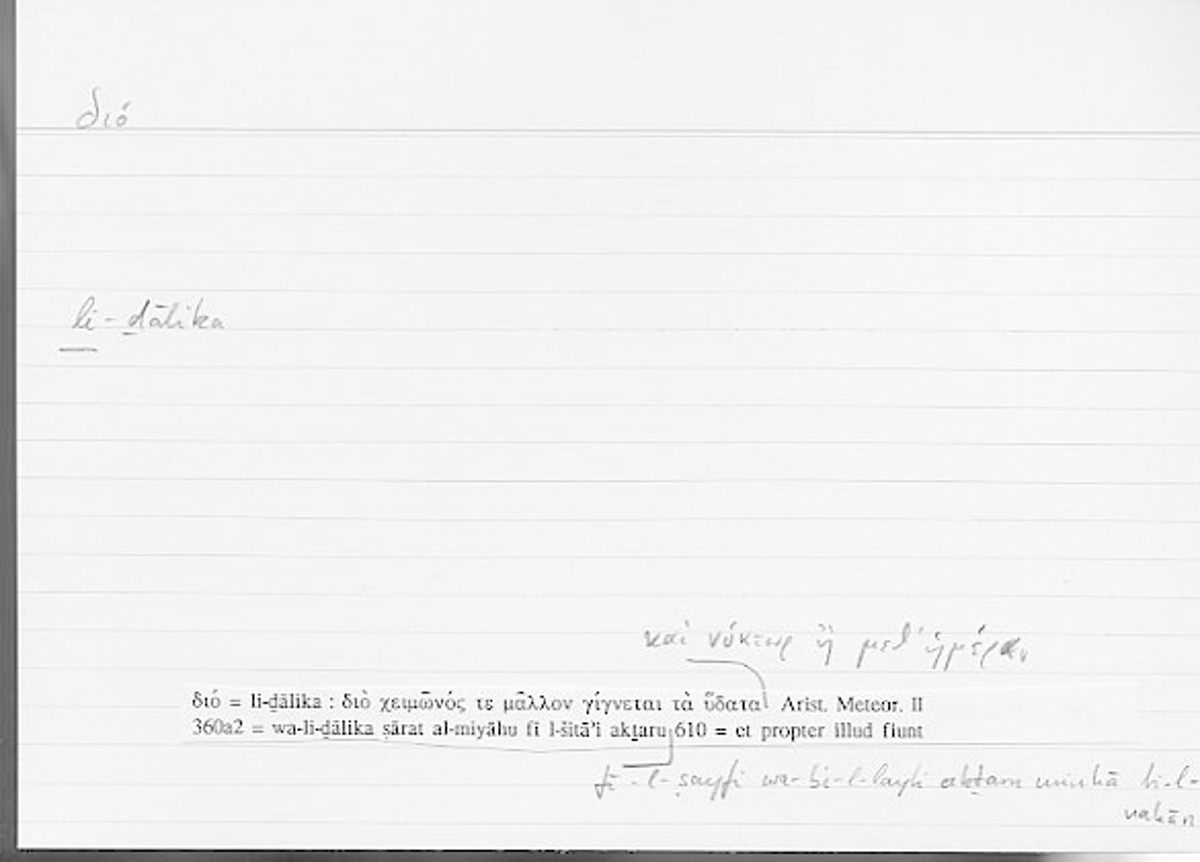 διό
li-ḏālika
καὶ νύκτωρ ἢ μεθ' ἡμέραν
διό = li-ḏālika : διὸ χειμῶνός τε μᾶλλον γίγνεται τὰ ὕδατα Arist. Meteor. II
360a2 = wa-li-ḏālika ṣārat al-miyāhu fī l-šitā’i akṯaru 610 = et propter illud fiunt
fī-l-ṣayfi wa-bi-l-layli akṯaru minhā bi-l-
nahār